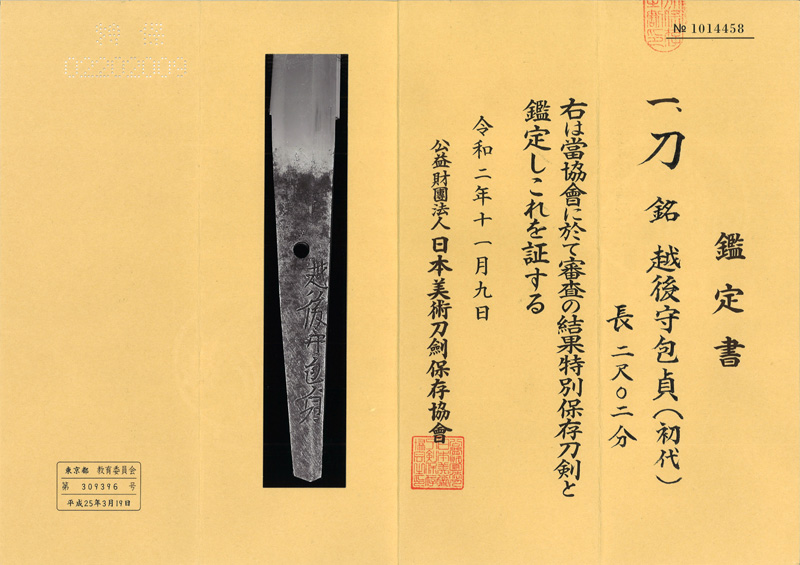 № 1014458
鑑定書
一、刀 銘 越後守包貞(初代)
長 二尺〇二分
右は當協會に於て審査の結果特別保存刀剣と
鑑定しこれを証する
令和二年十一月九日
公益財團法人 日本美術刀劍保存協會
越後守包貞
東京都 教育委員会
第 309396 号
平成25年3月19日